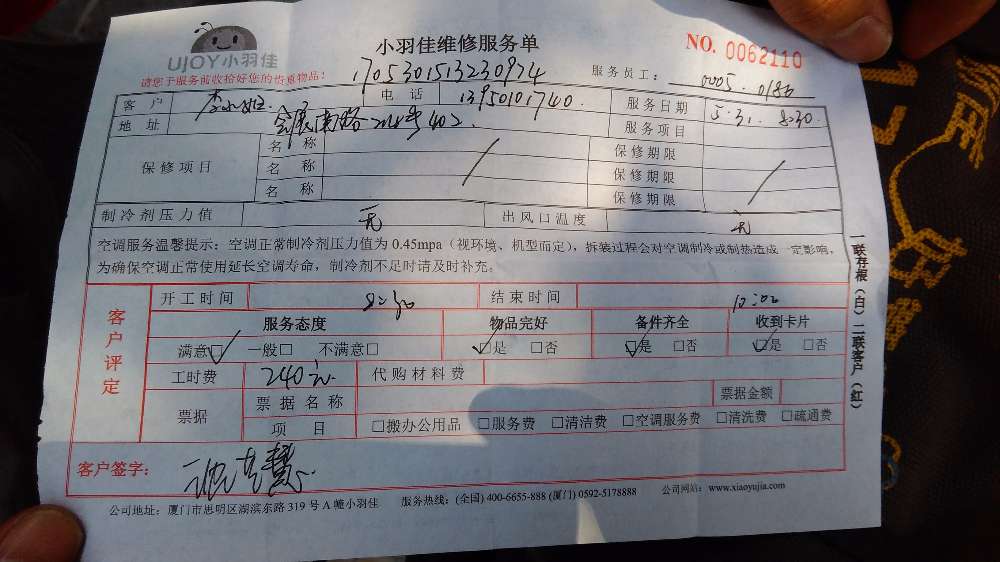 UJOY小羽佳
小羽佳维修服务单
NO. 0062110
请您于服务前收拾好您的贵重物品!
1705301513230974
服务员工: 0005. 0186
客户 李小姐. 电话 13950101740. 服务日期 5.31. 8:30.
地址 会展南路 号402. 服务项目
保修项目 名称 保修期限
名称 保修期限
名称 保修期限
制冷剂压力值 无 出风口温度 无
空调服务温馨提示:空调正常制冷剂压力值为 0.45mpa(视环境、机型而定),拆装过程会对空调制冷或制热造成一定影响,
为确保空调正常使用延长空调寿命,制冷剂不足时请及时补充。
客户评定
开工时间 8:30 结束时间 10:00
服务态度 物品完好 备件齐全 收到卡片
满意☑ 一般□ 不满意□ ☑是 □否 ☑是 □否 ☑是 □否
工时费 240元 代购材料费
票据 票据名称 票据金额
项目 □搬办公用品 □服务费 □清洁费 □空调服务费 □清洗费 □疏通费
客户签字:
公司地址:厦门市思明区湖滨东路 319 号 A 幢小羽佳 服务热线:(全国) 400-6655-888 (厦门) 0592-5178888 公司网站:www.xiaoyujia.com
一联存根(白)二联客户(红)